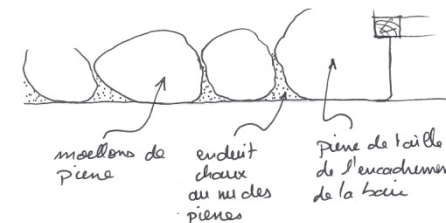 moellons de
pierre
enduit
chaux
au nu des
pierres
pierre de taille
de l'encadremen
de la baie